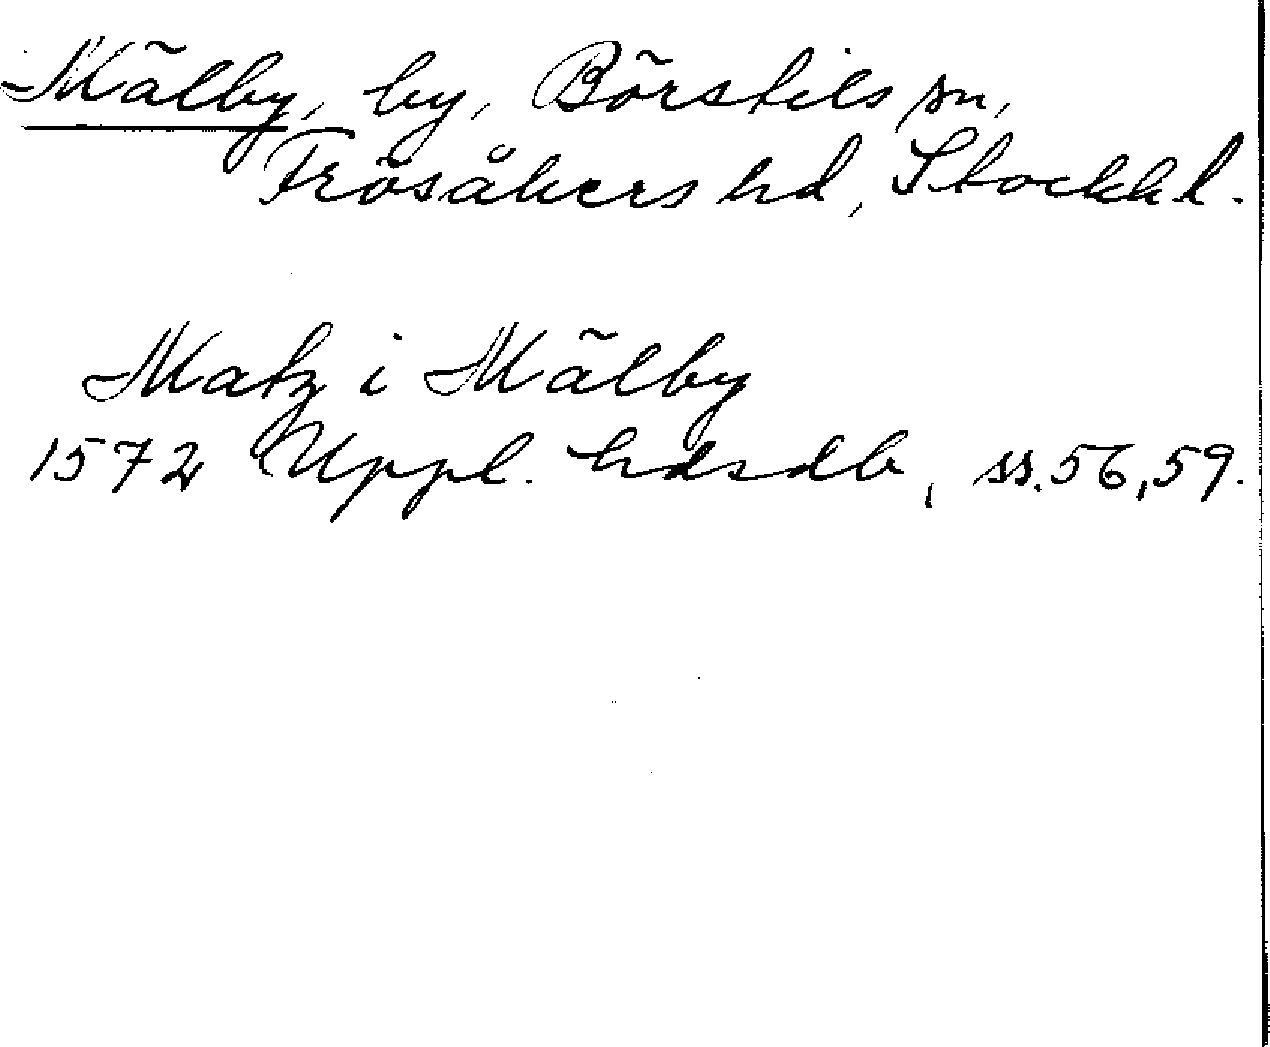 Mälby, by, Börstils sn,
Frösåkers hd, Stockh l.
Matz i Mälby
1572 Uppl. hdsdb, ss. 56, 59.